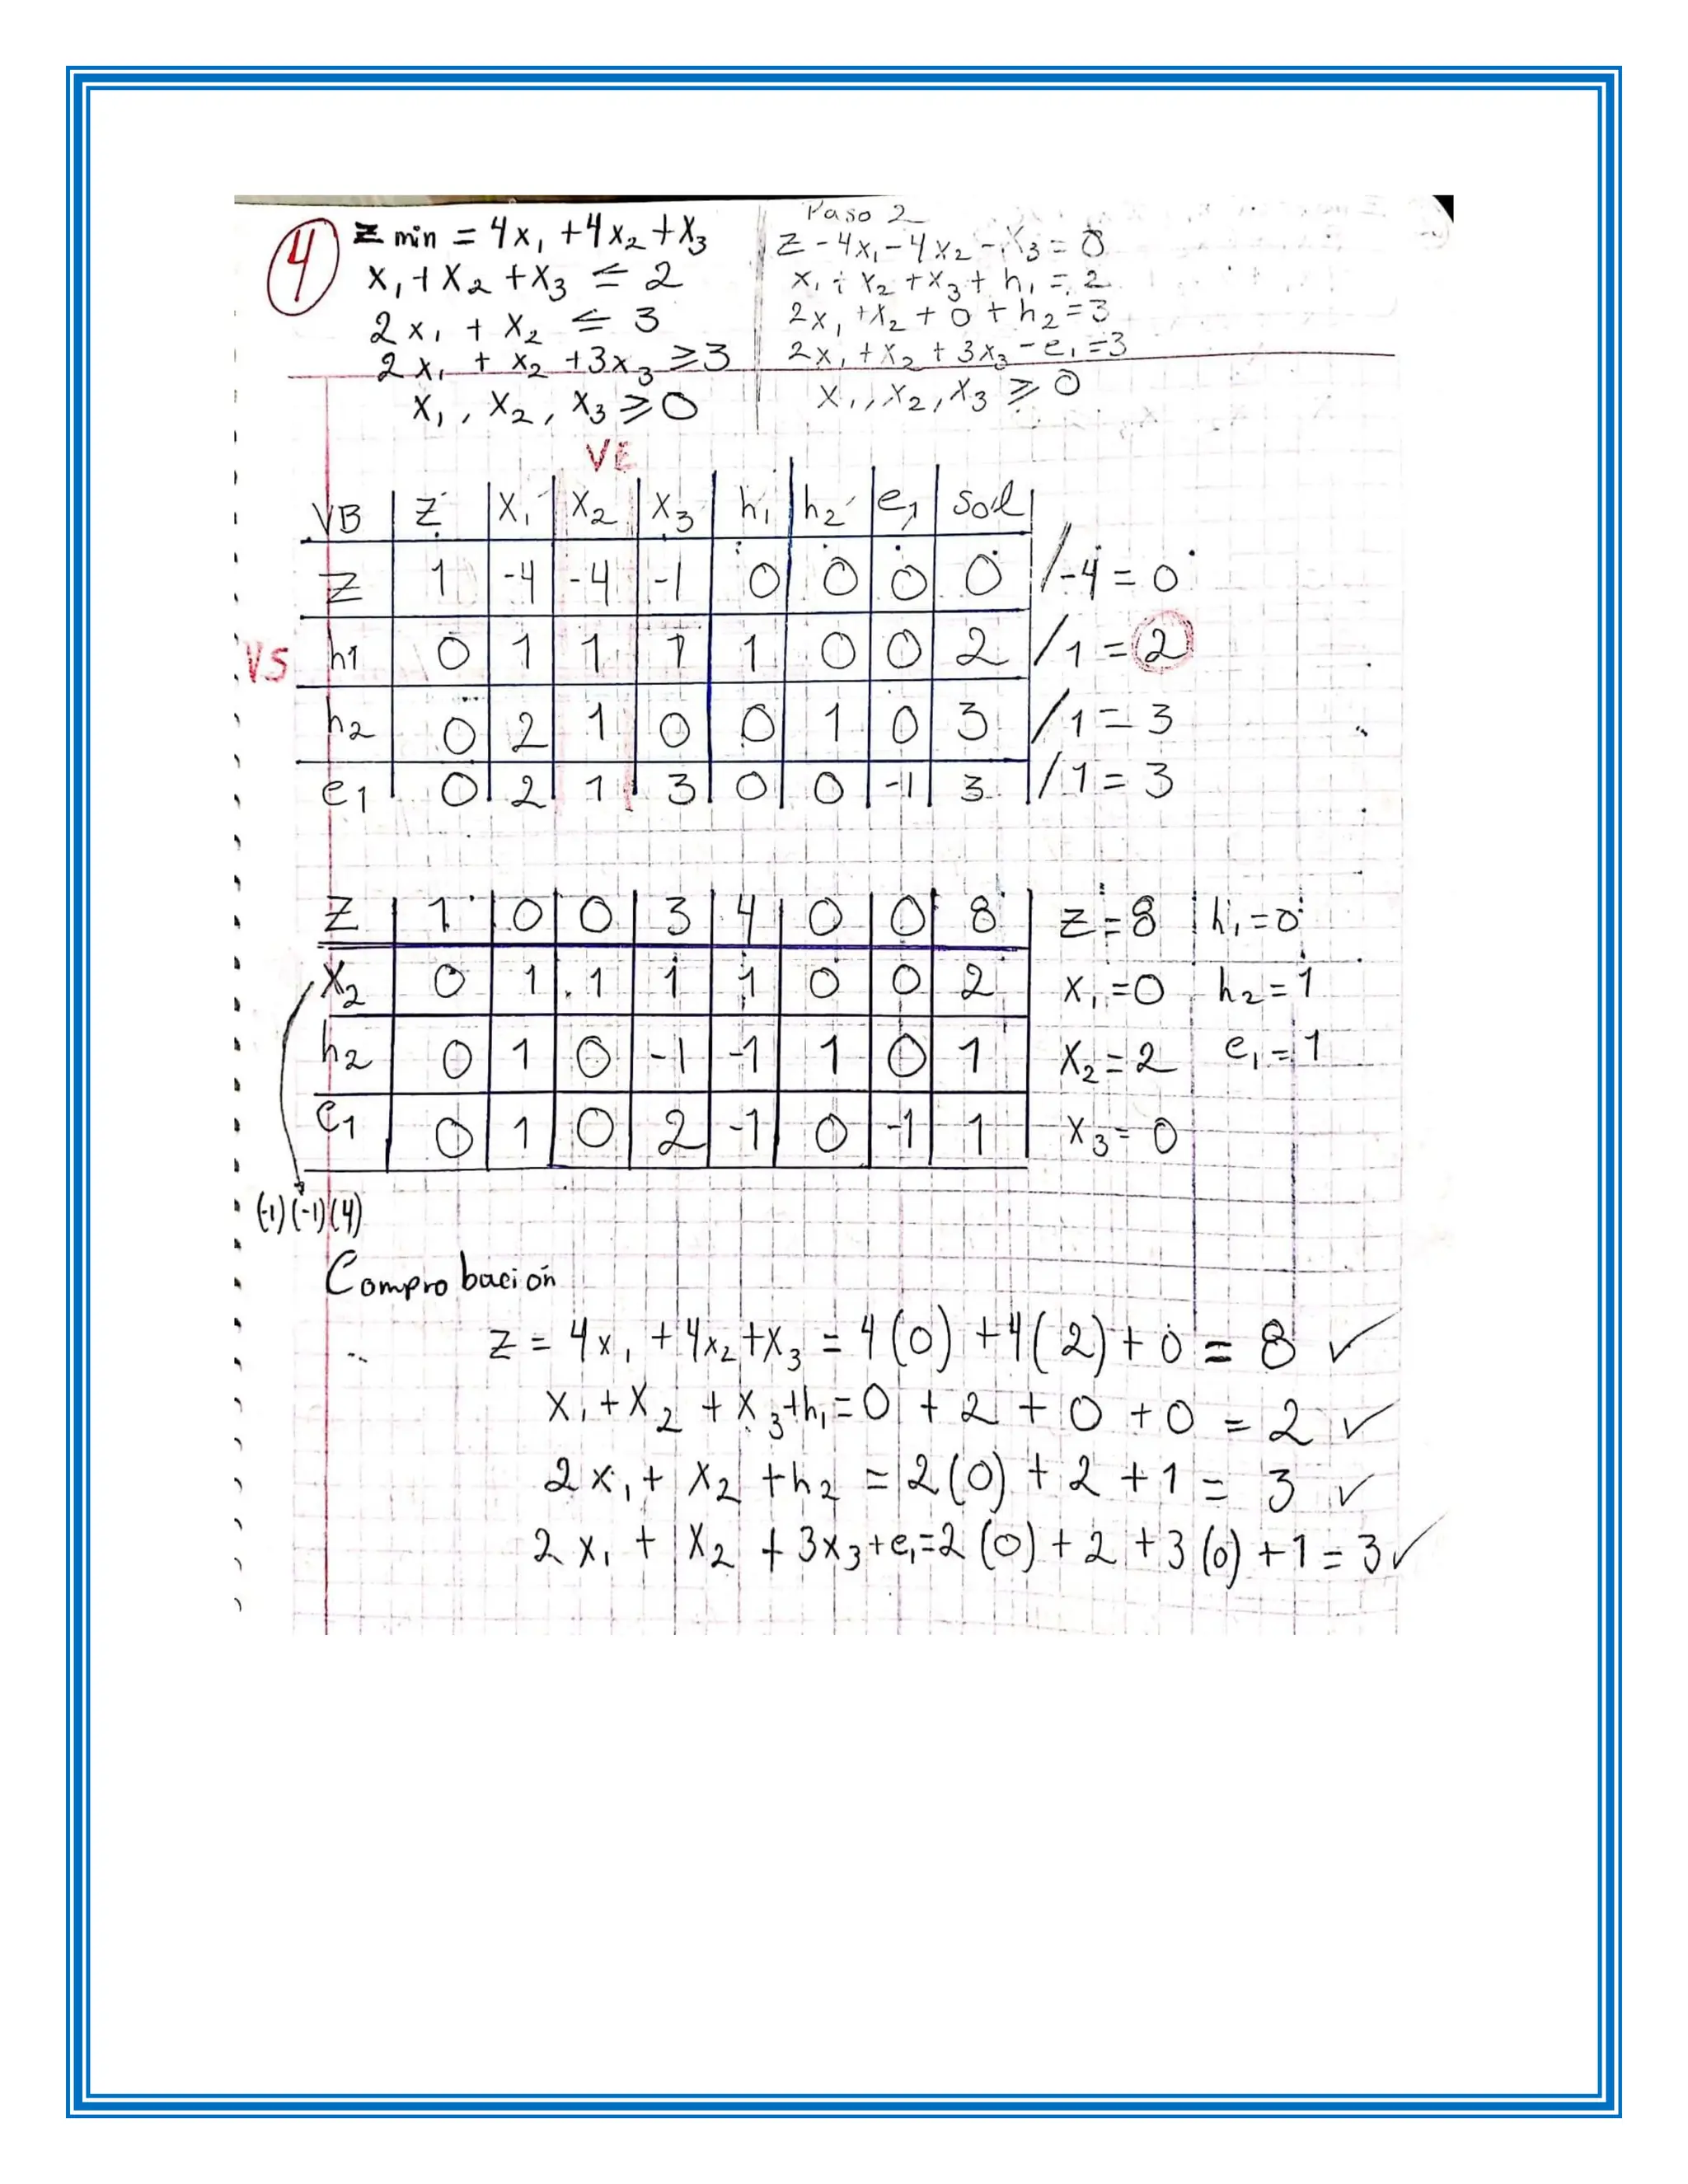 4
Z min = 4x₁ + 4x₂ + x₃
x₁ + x₂ + x₃ ≤ 2
2x₁ + x₂ ≤ 3
2x₁ + x₂ + 3x₃ ≥ 3
x₁, x₂, x₃ ≥ 0
Paso 2
Z - 4x₁ - 4x₂ - x₃ = 0
x₁ + x₂ + x₃ + h₁ = 2
2x₁ + x₂ + 0 + h₂ = 3
2x₁ + x₂ + 3x₃ - e₁ = 3
x₁, x₂, x₃ ≥ 0
VE
VB Z x₁ x₂ x₃ h₁ h₂ e₁ sol
Z 1 -4 -4 -1 0 0 0 0 /-4 = 0
VS h1 0 1 1 1 1 0 0 2 /1 = 2
h2 0 2 1 0 0 1 0 3 /1 = 3
e1 0 2 1 3 0 0 -1 3 /1 = 3
Z 1 0 0 3 4 0 0 8 Z = 8 h₁ = 0
x₂ 0 1 1 1 1 0 0 2 x₁ = 0 h₂ = 1
h2 0 1 0 -1 -1 1 0 1 x₂ = 2 e₁ = 1
e1 0 1 0 2 -1 0 -1 1 x₃ = 0
(-1)(-1)(4)
Comprobación
Z = 4x₁ + 4x₂ + x₃ = 4(0) + 4(2) + 0 = 8 ✓
x₁ + x₂ + x₃ + h₁ = 0 + 2 + 0 + 0 = 2 ✓
2x₁ + x₂ + h₂ = 2(0) + 2 + 1 = 3 ✓
2x₁ + x₂ + 3x₃ + e₁ = 2(0) + 2 + 3(0) + 1 = 3 ✓